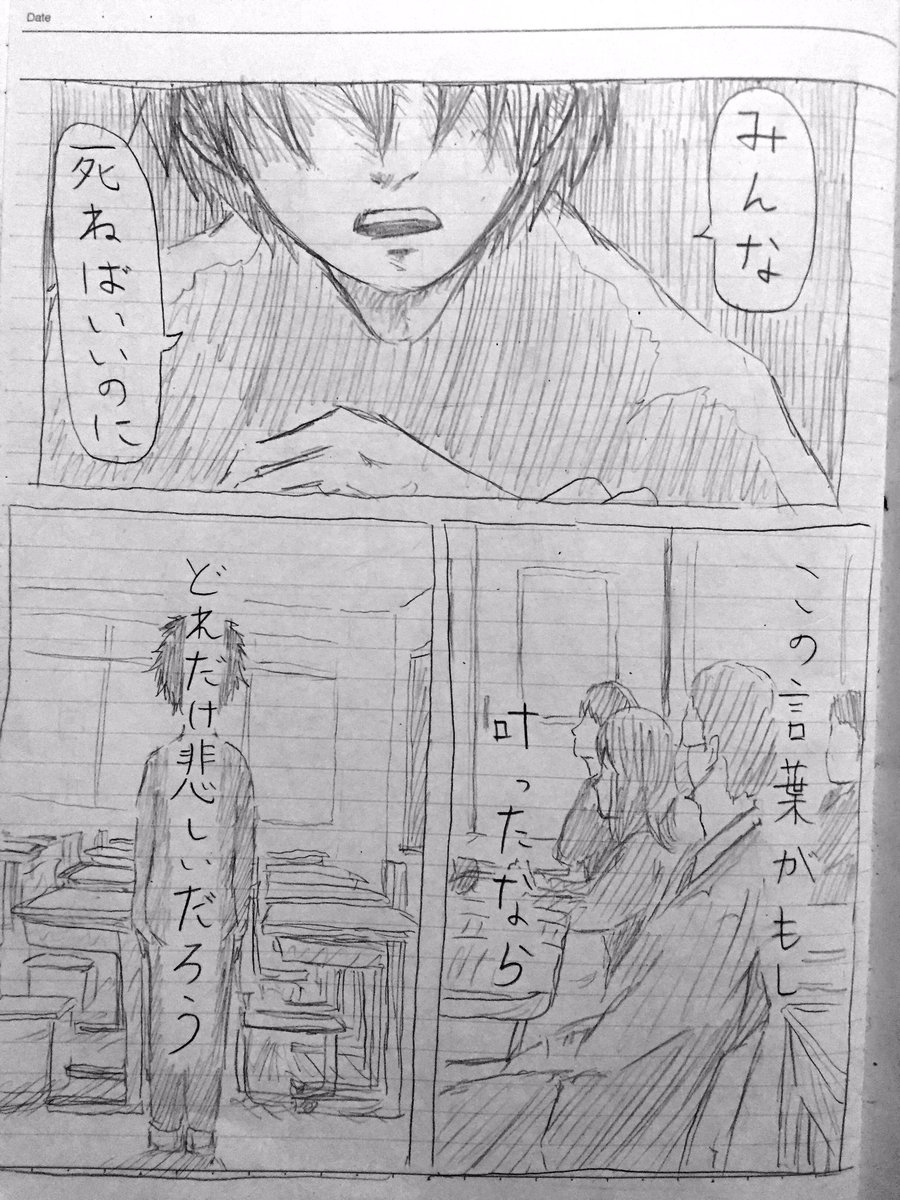 Date
みんな
死ねばいいのに
この言葉がもし
叶ったなら
どれだけ悲しいだろう